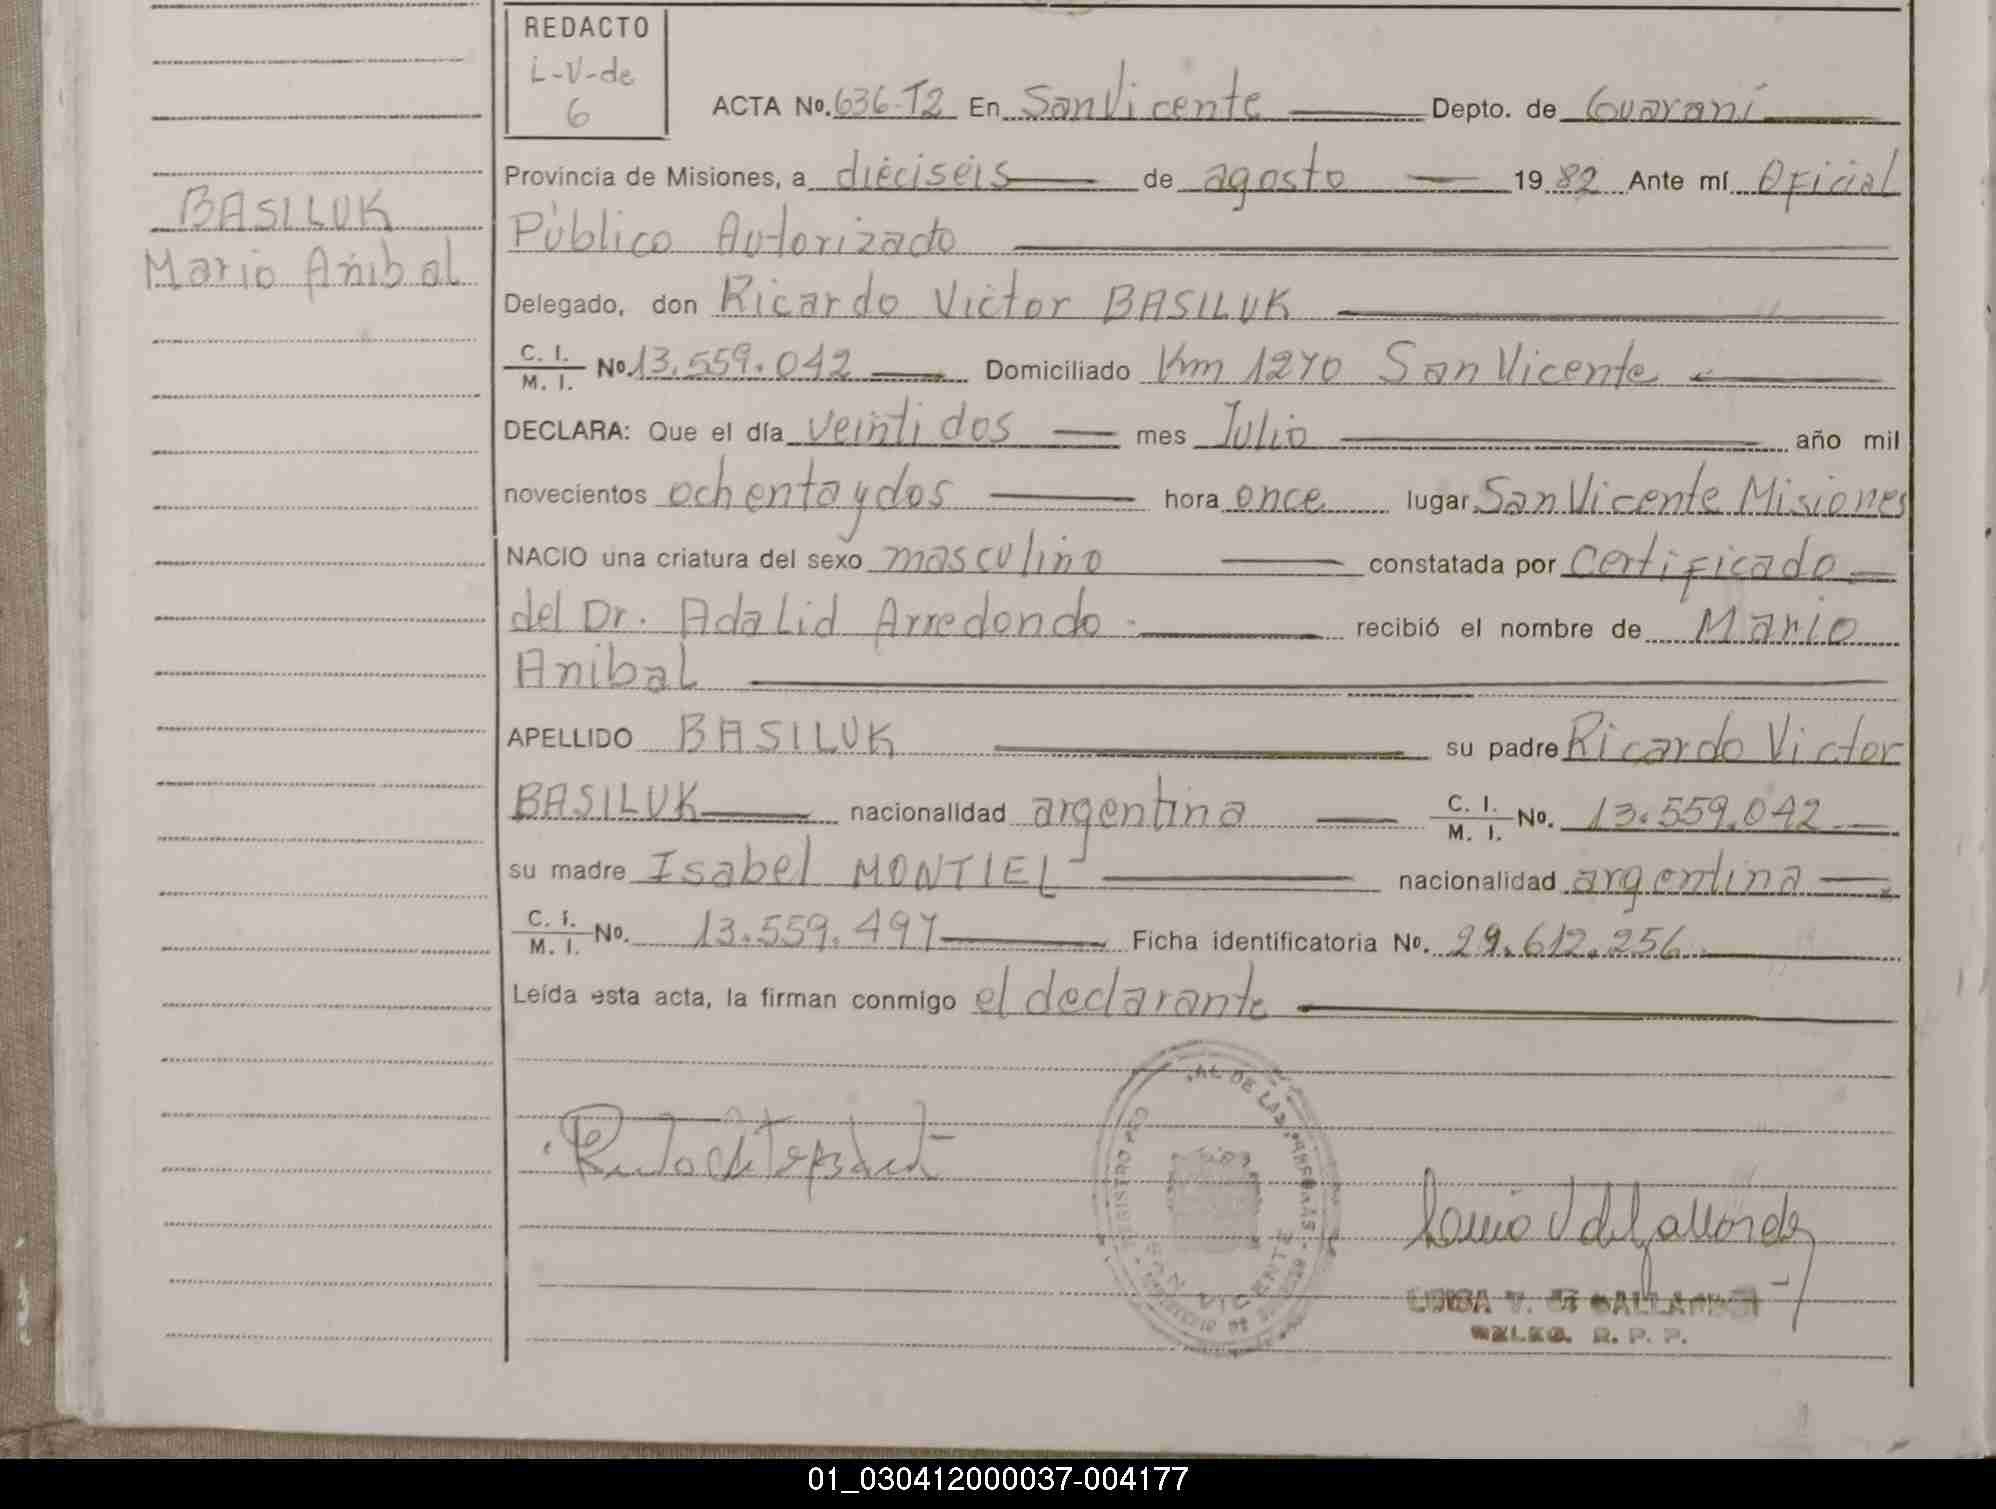 REDACTO
L-V-de
6
ACTA No. 636-T2 En San Vicente Depto. de Guaraní
Provincia de Misiones, a dieciséis de agosto 1982 Ante mí Oficial
Público Autorizado
BASILUK
Mario Anibal
Delegado, don Ricardo Victor BASILUK
C. I. / M. I. No. 13.559.042 Domiciliado Km 1270 San Vicente
DECLARA: Que el día veinti dos mes Julio año mil
novecientos ochenta y dos hora once lugar San Vicente Misiones
NACIO una criatura del sexo masculino constatada por certificado
del Dr. Adalid Arredondo recibió el nombre de Mario
Anibal
APELLIDO BASILUK su padre Ricardo Victor
BASILUK nacionalidad argentina C. I. / M. I. No. 13.559.042
su madre Isabel MONTIEL nacionalidad argentina
C. I. / M. I. No. 13.559.497 Ficha identificatoria No. 29.612.256
Leída esta acta, la firman conmigo el declarante
AL DE LAS PERSONAS
SAN VICENTE
LUISA V. DE GALLARDO
R. P. P.
01_030412000037-004177